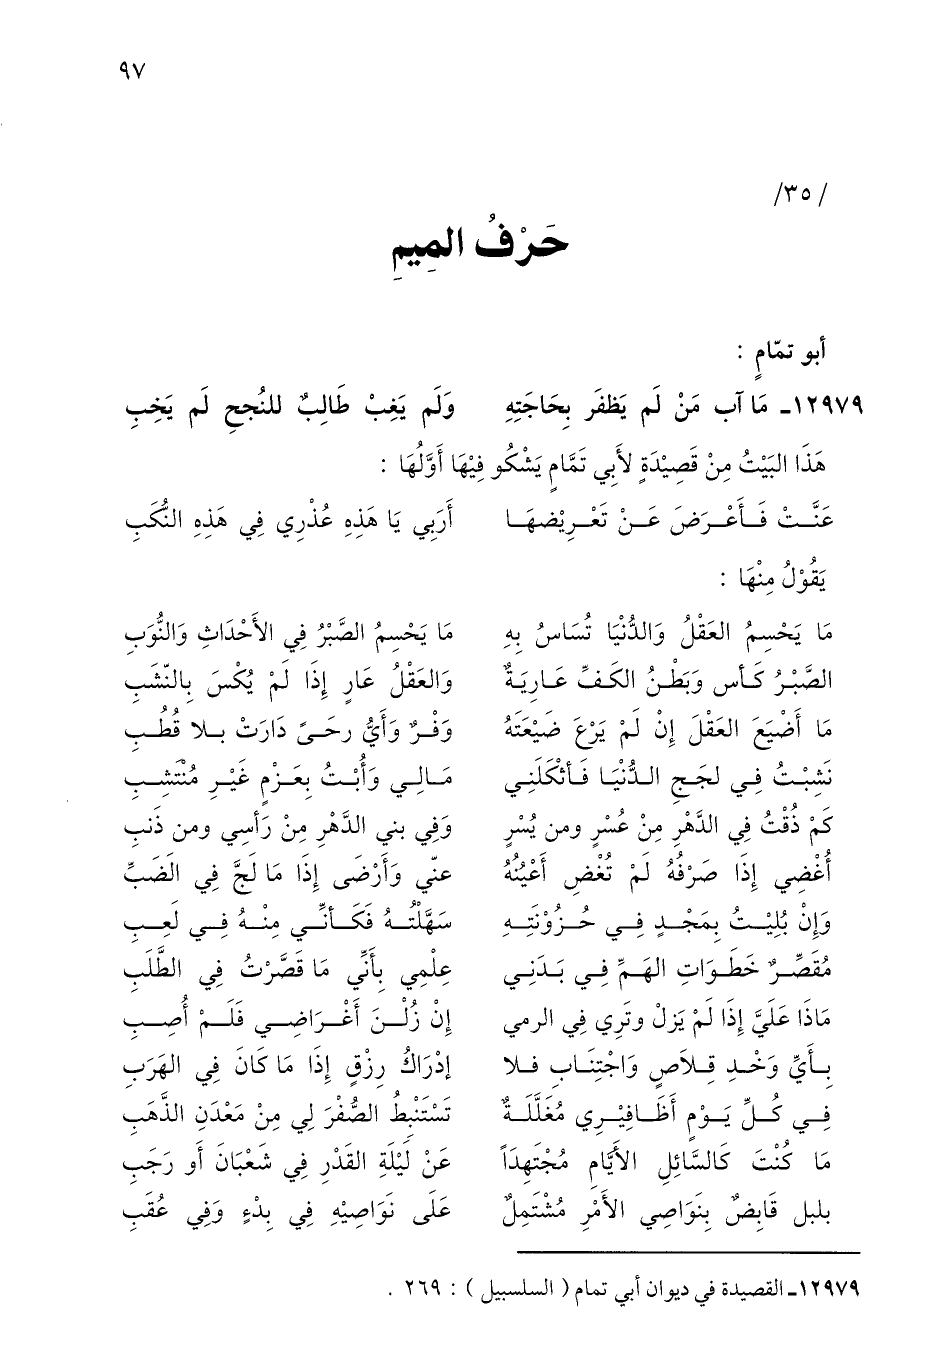 ٩٧
/٣٥/
حَرْفُ المِيمِ
أبو تمّامٍ :
١٢٩٧٩ـ مَا آب مَنْ لَم يَظفَر بِحَاجَتِهِ وَلَم يَغِبْ طَالِبٌ للنُجحِ لَم يَخِبِ
هَذَا البَيْتُ مِنْ قَصِيْدَةٍ لأبِي تَمَّامٍ يَشْكُو فِيْهَا أوَّلُهَا :
عَنَّتْ فَأعْرَضَ عَنْ تَعْرِيْضِهَا أرَبِي يَا هَذِهِ عُذْرِي فِي هَذِهِ النُّكَبِ
يَقُوْلُ مِنْهَا :
مَا يَحْسِمُ العَقْلُ وَالدُّنْيَا تُسَاسُ بِهِ مَا يَحْسِمُ الصَّبْرُ فِي الأحْدَاثِ وَالنُّوَبِ
الصَّبْرُ كَأس وَبَطْنُ الكَفِّ عَارِيَةٌ وَالعَقْلُ عَارٍ إِذَا لَمْ يُكْسَ بِالنَّشَبِ
مَا أضْيَعَ العَقْلَ إنْ لَمْ يَرْعَ ضَيْعَتَهُ وَفْرٌ وَأيُّ رحَىً دَارَتْ بِلا قُطُبِ
نَشِبْتُ فِي لجَجِ الدُّنْيَا فَأثْكَلَنِي مَالِي وَأُبْتُ بِعَزْمٍ غَيْرِ مُنْتَشِبِ
كَمْ ذُقْتُ فِي الدَّهْرِ مِنْ عُسْرٍ ومن يُسْرٍ وَفِي بني الدَّهْرِ مِنْ رَأسِي ومن ذَنبِ
أُغْضِي إِذَا صَرْفُهُ لَمْ تُغْضِ أعْيُنُهُ عنِّي وَأرْضَى إِذَا مَا لَجَّ فِي الغَضَبِّ
وَإنْ بُلِيْتُ بِمَجْدٍ فِي حُزُوْنَتِهِ سَهَّلْتُهُ فَكَأنِّي مِنْهُ فِي لَعِبِ
مُقَصِّرٌ خَطَوَاتِ الهَمِّ فِي بَدَنِي عِلْمِي بِأنِّي مَا قَصَّرْتُ فِي الطَّلَبِ
مَاذَا عَلَيَّ إِذَا لَمْ يَزلْ وَتَرِي فِي الرمي إنْ زُلْنَ أغْرَاضِي فَلَمْ أُصِبِ
بِأيِّ وَخْدِ قِلاَصٍ وَاجْتِنَابِ فَلا إدْرَاكُ رِزْقٍ إِذَا مَا كَانَ فِي الهَرَبِ
فِي كُلِّ يَوْمٍ أظَافِيْرِي مُغَلَّلَةٌ تَسْتَنْبِطُ الصُّفْرَ لِي مِنْ مَعْدَنِ الذَّهَبِ
مَا كُنْتَ كَالسَّائِلِ الأيَّامِ مُجْتَهِدَاً عَنْ لَيْلَةِ القَدْرِ فِي شَعْبَانَ أو رَجَبِ
بلبل قَابِضٌ بِنَوَاصِي الأمْرِ مُشْتَمِلٌ عَلَى نَوَاصِيْهِ فِي بِدْءٍ وَفِي عُقَبِ
١٢٩٧٩ـ القصيدة في ديوان أبي تمام ( السلسبيل ) : ٢٦٩ .